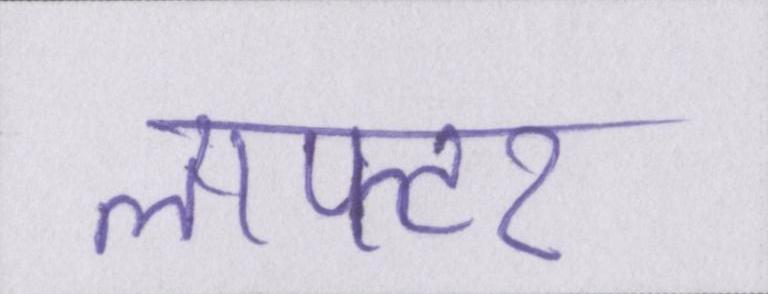 लाफ्टर